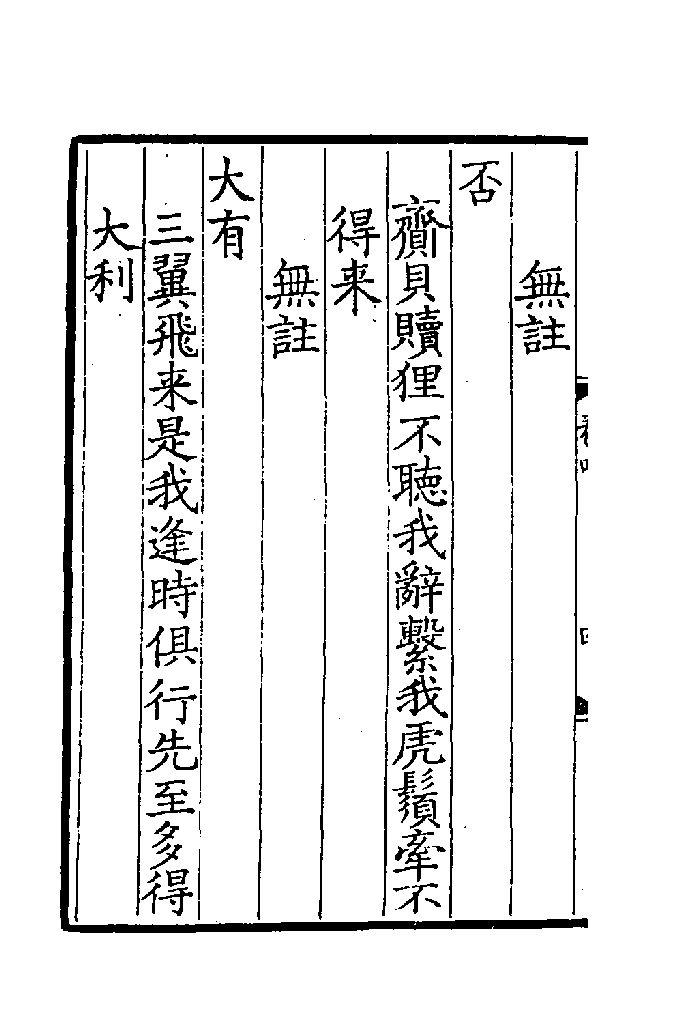 無註
否
齎貝贖狸不聴我辭繫我虎鬚牽不
得来
無註
大有
三翼飛来是我逢時俱行先至多得
大利